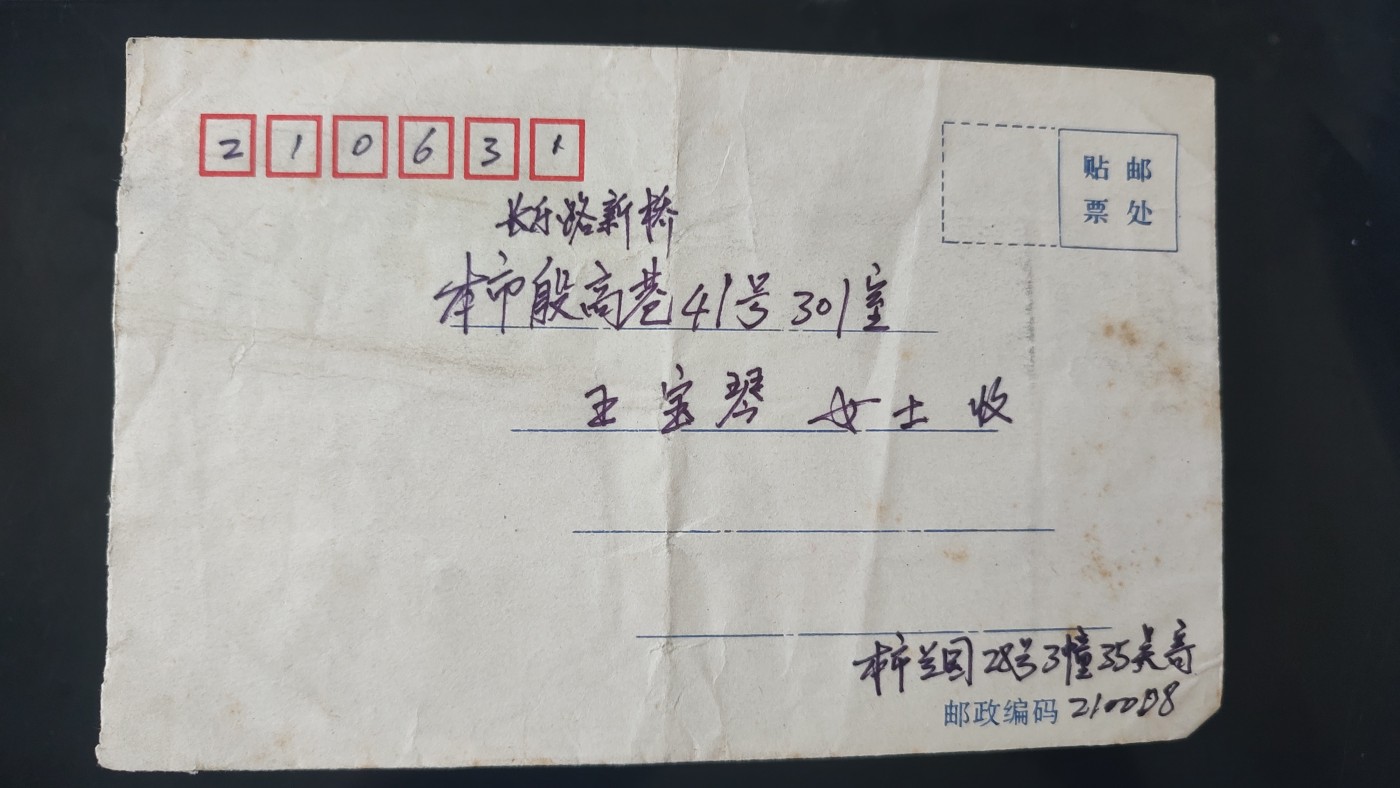 210631
贴邮
票处
长乐路新桥
本市殷高巷41号301室
王宝琴 女士 收
本市兰园28号3幢35吴寄
邮政编码 210008